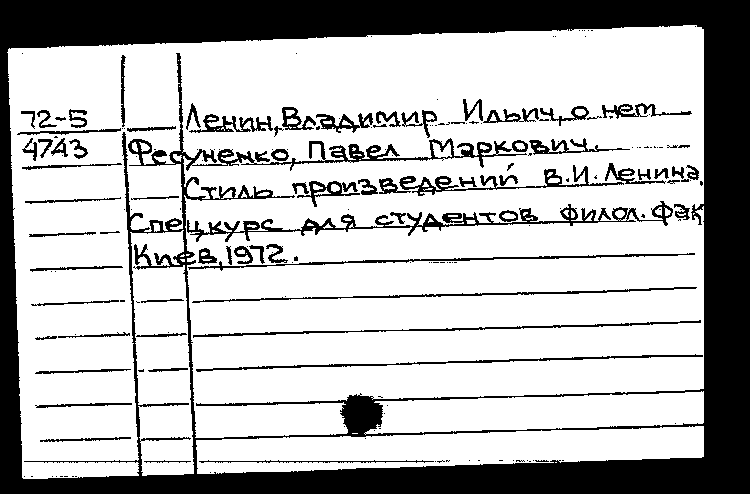 72-5 Ленин, Владимир Ильич, о нем
4743 Фесуненко, Павел Маркович.
Стиль произведений В.И. Ленина.
Спецкурс для студентов филол. фак
Киев, 1972.